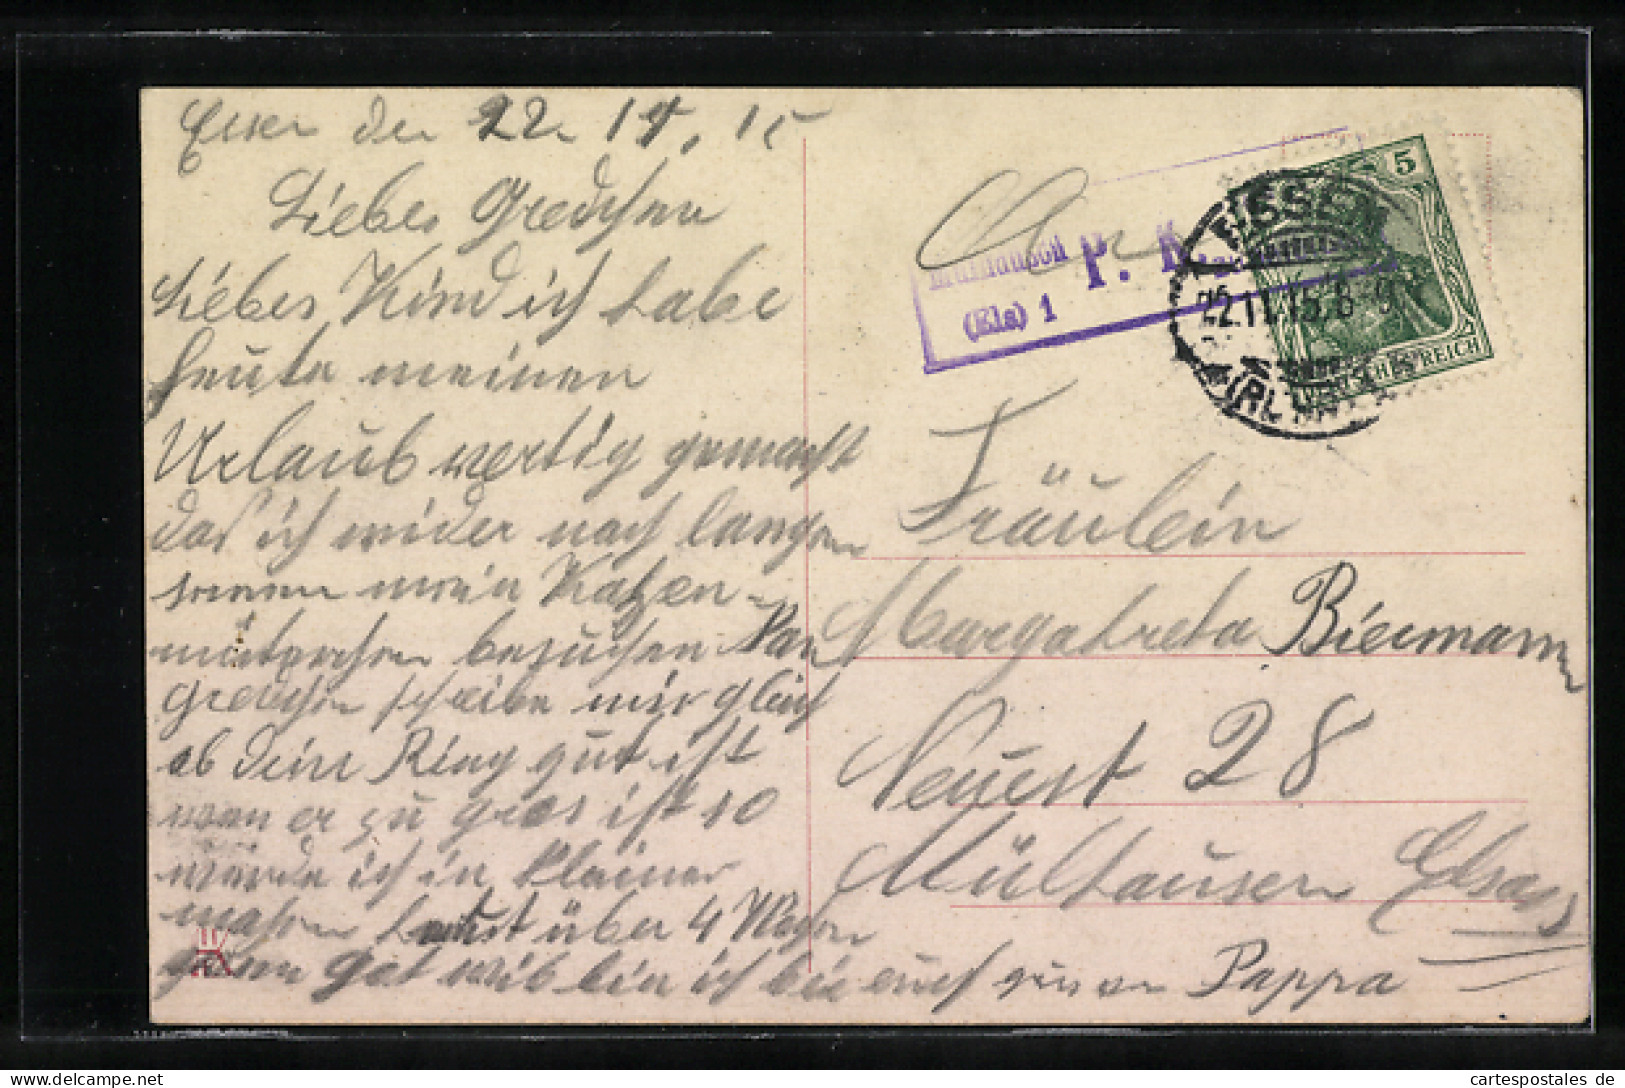 Essen den 22. 11. 15
Liebes Gredchen
Liebes Kind ich habe
heute meinen
Urlaub vertig gemacht
das ich wider nach langen
mein Katzen-
müterchen besuchen kan
Gredchen schreibe mir gleich
ob dein Ring gut ist
wen er zu gros ist so
würde ich in kleiner
machen heut über 4 Wochen
wen Got wil bin ich bei euch grus von Pappa
An
Mülhausen
P. K.
(Els) 1
ESSEN
22.11.15. 8-9
(RUHR)
5
DEUTSCHES REICH
Fräulein
Margahreta Biermann
Neuest 28
Mülhausen Elsass
cartespostales.de